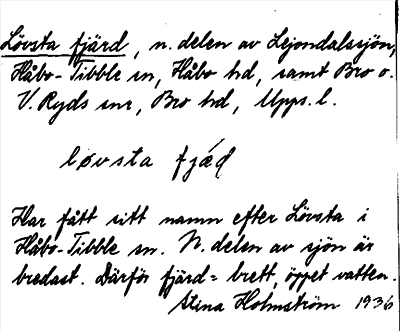 Lövsta fjärd, n. delen av Lejondalssjön,
Håbo-Tibble sn, Håbo hd, samt Bro o.
V. Ryds snr, Bro hd, Upps. l.
løvsta fjæd
Har fått sitt namn efter Lövsta i
Håbo-Tibble sn. N. delen av sjön är
bredast. Därför fjärd = brett, öppet vatten.
Stina Holmström 1936